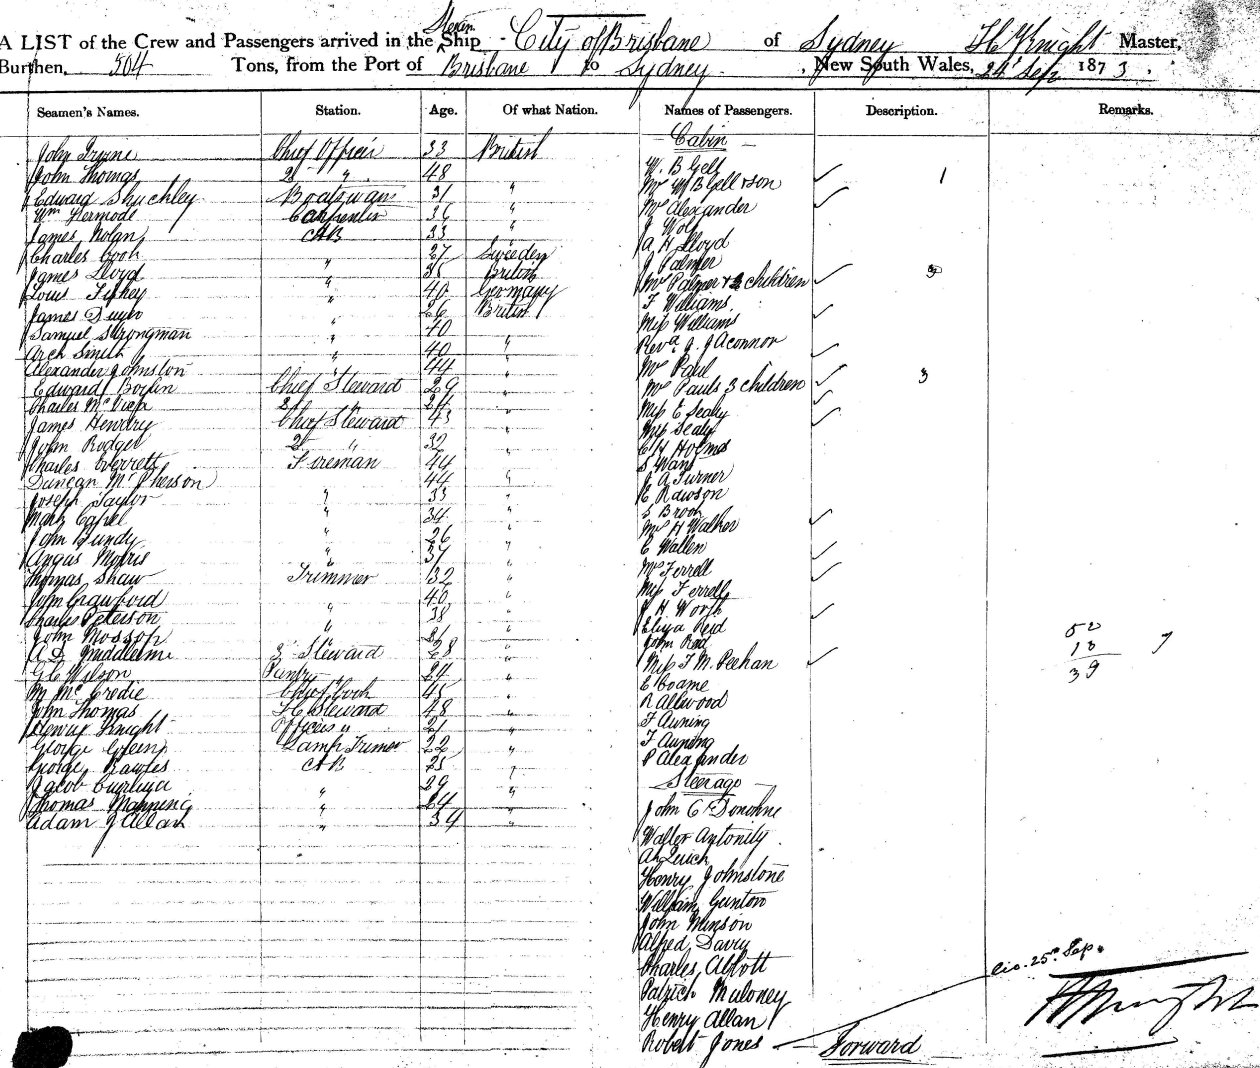 A LIST of the Crew and Passengers arrived in the Steam Ship City of Brisbane of Sydney H Knight Master,
Burthen, 504 Tons, from the Port of Brisbane to Sydney, New South Wales, 24 Sep 1873.
Seamen's Names. Station. Age. Of what Nation. Names of Passengers. Description. Remarks.
John Irvine Chief Officer 33 British
John Thomas 2 " 48
Edward Shuchley Boatswain 31 "
Wm Kermode Carpenter 36 "
James Nolan AB 33 "
Charles Cook " 27 Sweeden
James Lloyd " 35 British
Louis " 40 Germany
James " 26 British
Samuel Strongman " 40
Arch Smith " 40 "
Alexander Johnston " 44 "
Edward Boylin Chief Steward 29 "
Charles 2 " 24 "
James Hendry Chief Steward 43 "
John Rodger 2 " 32 "
Charles Everrett Fireman 44 "
Duncan McPherson 44 "
Joseph Taylor " 33 "
Mark Capel " 34 "
John Bundy " 26 "
Angus Morris " 37 "
Thomas Shaw Trimmer 32 "
John Crawford 40 "
Charles Peterson " 38 "
John Mossop " 21 "
A D 3 Steward 28 "
G C Wilson Pantry " 24 "
M McCredie Chief Cook 45 "
John Thomas F C Steward 48 "
Henry Knight Officers " 21 "
George Green Lamp Trimer 22 "
George Rawles AB 25 "
Jacob 29 "
Thomas Manning " 24 "
Adam J Allan " 34 "
Cabin
W. B Gell
Mrs W B Gell & son 1
Mrs Alexander
J Wolf
A H Lloyd
J Palmer
Mrs Palmer & 3 children 3
F Williams
Miss Williams
Revd J. J Aconnor
Mrs Paul
Mrs Pauls 3 children 3
Miss E Sealy
Miss Sealy
C H Holmes
S Wans
J A Turner
E Rawson
S Brook
Mrs H Walker
E Wallen
Mrs Ferrell
Miss Ferrell
J H Worth
Eliza Reid
John Reid
Miss F M. Peehan
E Coame
R Allwood
F Auning
F Auning
P Alexander
Steerage
John C Donohue
Walter Antonity
Ah Quich
Henry Johnstone
William Gunton
John Minson
Alfred Davey
Charles Abbott
Patrick Muloney
Henry Allan
Robert Jones
Forward
52
13 7
39
25 Sep.
H Knight